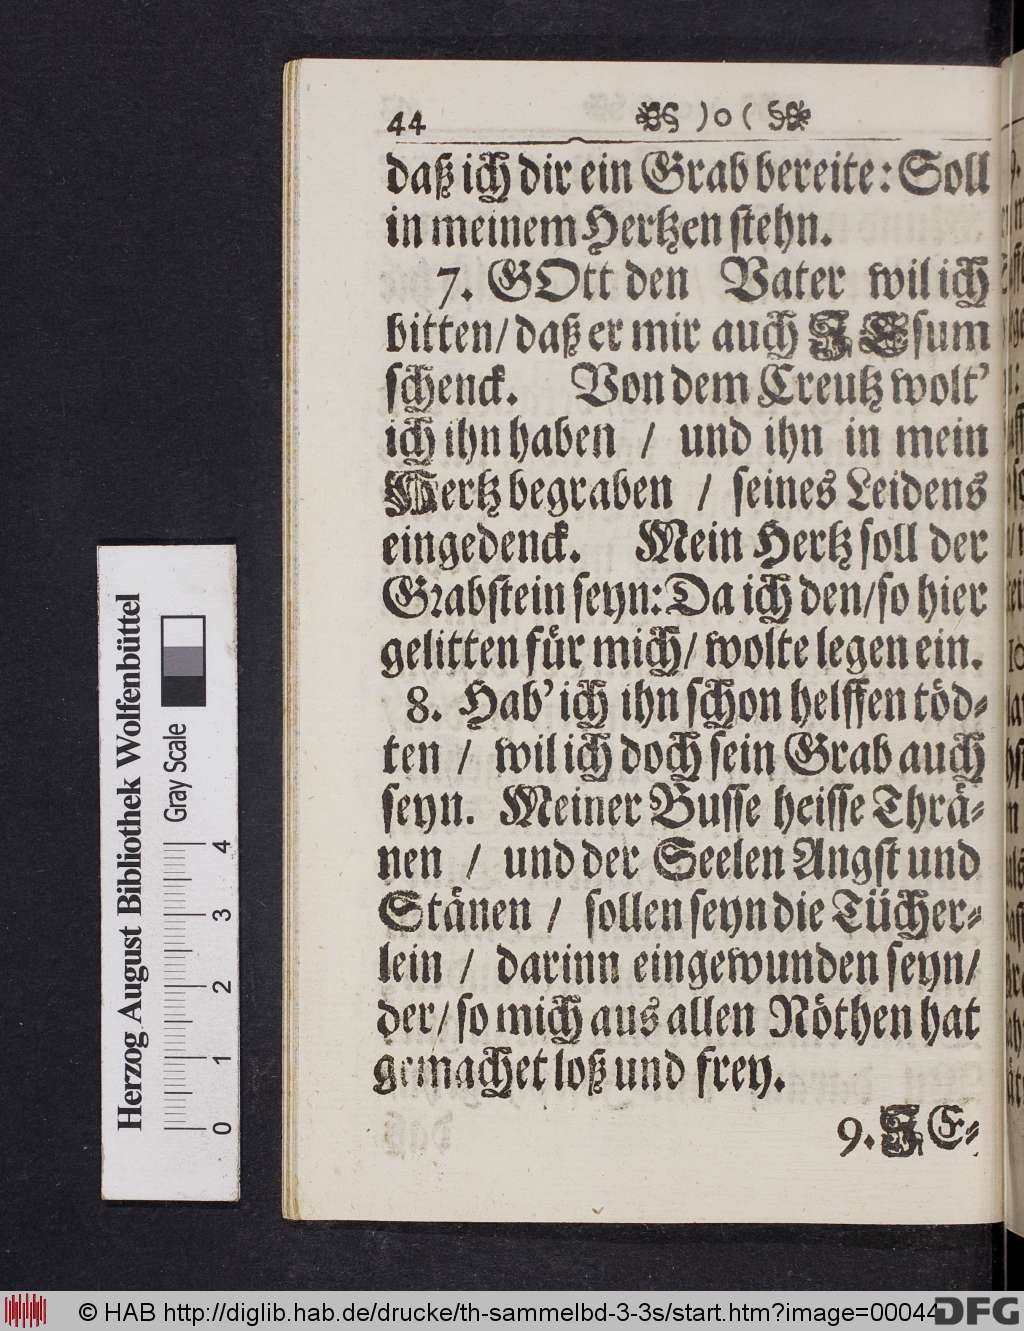 44 )o(
daß ich dir ein Grab bereite: Soll
in meinem Hertzen stehn.
7. GOtt den Vater wil ich
bitten/ daß er mir auch JEsum
schenck. Von dem Creutz wolt'
ich ihn haben / und ihn in mein
Hertz begraben / seines Leidens
eingedenck. Mein Hertz soll der
Grabstein seyn: Da ich den/ so hier
gelitten für mich/ wolte legen ein.
8. Hab' ich ihn schon helffen töd-
ten / wil ich doch sein Grab auch
seyn. Meiner Busse heisse Thrä-
nen / und der Seelen Angst und
Stänen / sollen seyn die Tücher-
lein / darinn eingewunden seyn/
der/ so mich aus allen Nöthen hat
gemachet loß und frey.
9. JE-
Herzog August Bibliothek Wolfenbüttel
Gray Scale
0 1 2 3 4
© HAB http://diglib.hab.de/drucke/th-sammelbd-3-3s/start.htm?image=00044
DFG